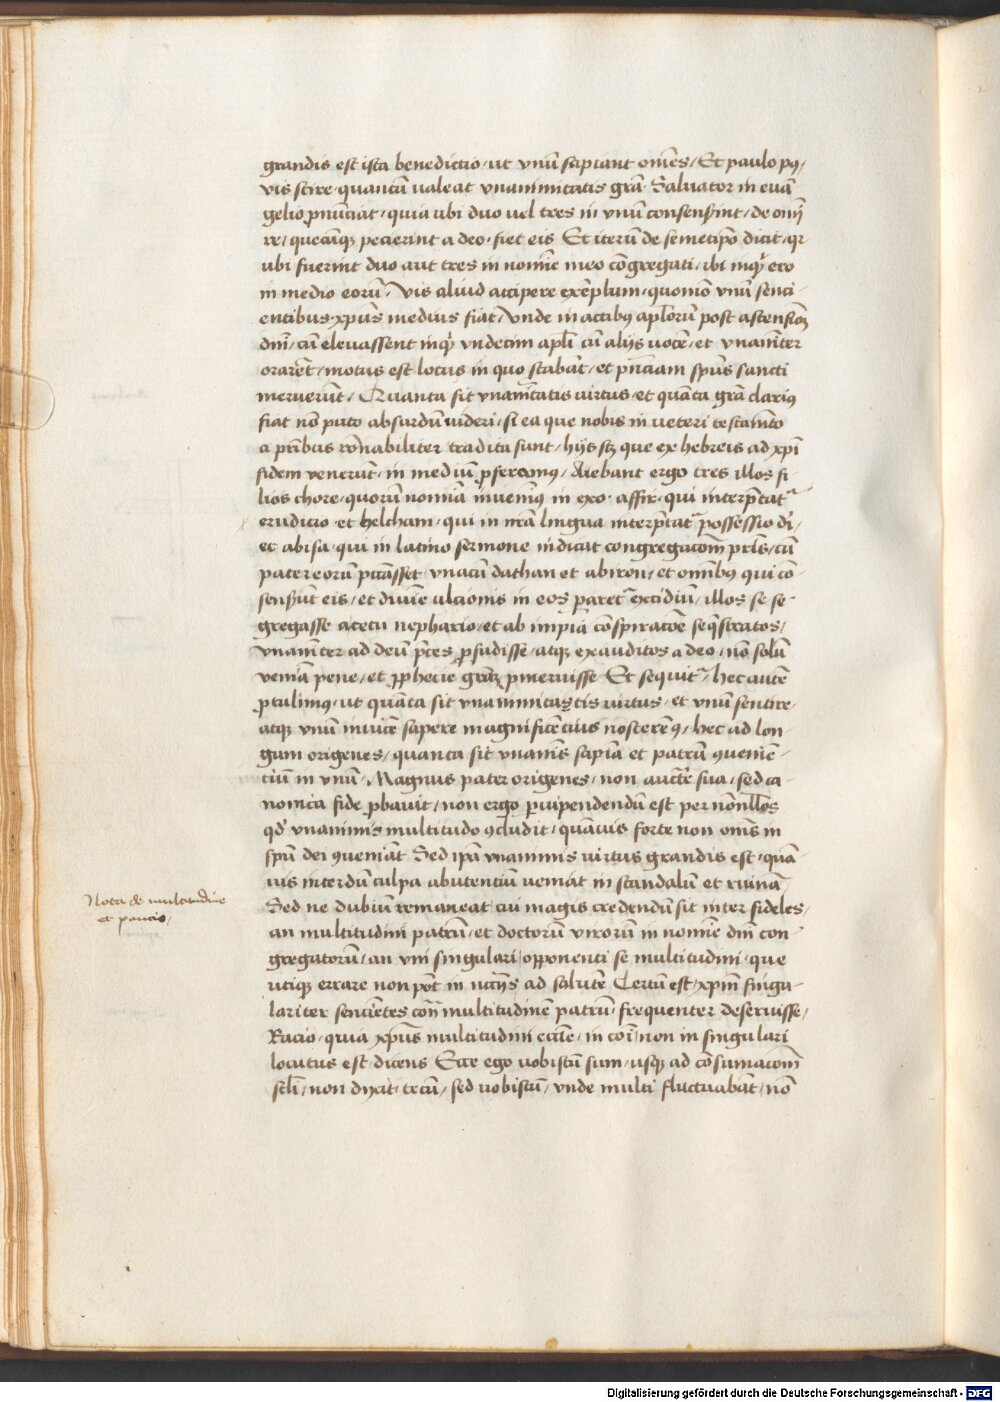 grandis est ista benedictio, ut vnū sapiant om̄es, Et paulo pꝰ,
vis scire quantū ualeat vnanimitatis grā. Saluator in euā
gelio ꝓnūciat, quia ubi duo uel tres in vnū consenserint, de omī
re, quecūqꝫ pecierint a deo, fiet eis Et iterū de semetipō dicit, qr
ubi fuerint duo aut tres in nomīe meo cōgregati, ibi inqꝫ ero
in medio eorū, Vis aliud accipere exēplum, quomō vnū senci-
entibus xpūs medius fiat, Vnde in actibꝰ aplōrū post ascensionē
dnī, cū eleuassent inqꝫ vndecim aplī cū alijs vocē, et vnanīter
orarēt, motus est locus in quo stabāt, et pn̄ciam spūs sancti
meruerūt, Quanta sit vnanīitatis uirtus et quāta grā clariꝰ
fiat nō puto absurdū uideri, si ea que nobis in ueteri testamēto
a pr̄ibus rōnabiliter tradita sunt, hijs scꝫ que ex hebreis ad xpī
fidem venerūt, in mediū ꝓferamꝰ, Aiebant ergo tres illos fi
lios chore quorū nomīa inuenimꝰ in exo. assir qui interp̄tatr
erudicio et helcham, qui in nr̄a lingua interp̄tatr possessio dī,
et abisa qui in latino sermone indicat congregacōm pr̄is, cū
pater eorū pccāsset vnacū dathan et abiron, et om̄ibꝰ qui cō-
senserūt eis, et diuīe ulcionis in eos paretr excidiū, illos se se-
gregasse a cetu nephario, et ab impia cōspiratōe seqꝫstratos,
vnanīter ad deū p̄ces ꝓfudisse, atqꝫ exauditos a deo, nō solū
veniā pene, et ꝓphecie grām ꝓmeruisse Et sequitr, hec autē
ꝓtulimꝰ, ut quāta sit vnanimitatis uirtus, et vnū sentire,
atqꝫ vnū inuicē sapere magnificēcius nosceremꝰ, hec ad lon-
gum origenes, quanta sit vnanīs sapīa et patrū ꝯueniē-
tiū in vnū, Magnus pater origenes, non auctē sua, sed ca-
nonica fide ꝓbauit, non ergo paruipendendū est per nōnllos
qd̄ vnanimis multitudo ꝯcludit, quāuis forte non om̄s in
spū dei ꝯueniāt Sed ipā vnanimis uirtus grandis est, quā-
uis interdū culpa abutentiū ueniat in scandalū et ruinā,
Sed ne dubiū remaneat, cui magis credendū sit inter fideles,
an multitudini patrū, et doctorū virorū in nomīe dnī con-
gregatorū, an vni singulari opponenti se multitudini, que
utiqꝫ errare non pōt in nccījs ad salutē Certū est, xpīm singu-
lariter sencietes con multitudinē patrū, frequenter deseruisse,
Racio, quia xpūs multitudini eccīe, in cōi, non in singulari
locutus est dicens Ecce ego uobiscū sum, usqꝫ ad cōsumacōm
sclī, non dixit tecū, sed uobiscū, vnde multi fluctuabāt, nō
Nota de multitudine
et paucis,
Digitalisierung gefördert durch die Deutsche Forschungsgemeinschaft - DFG